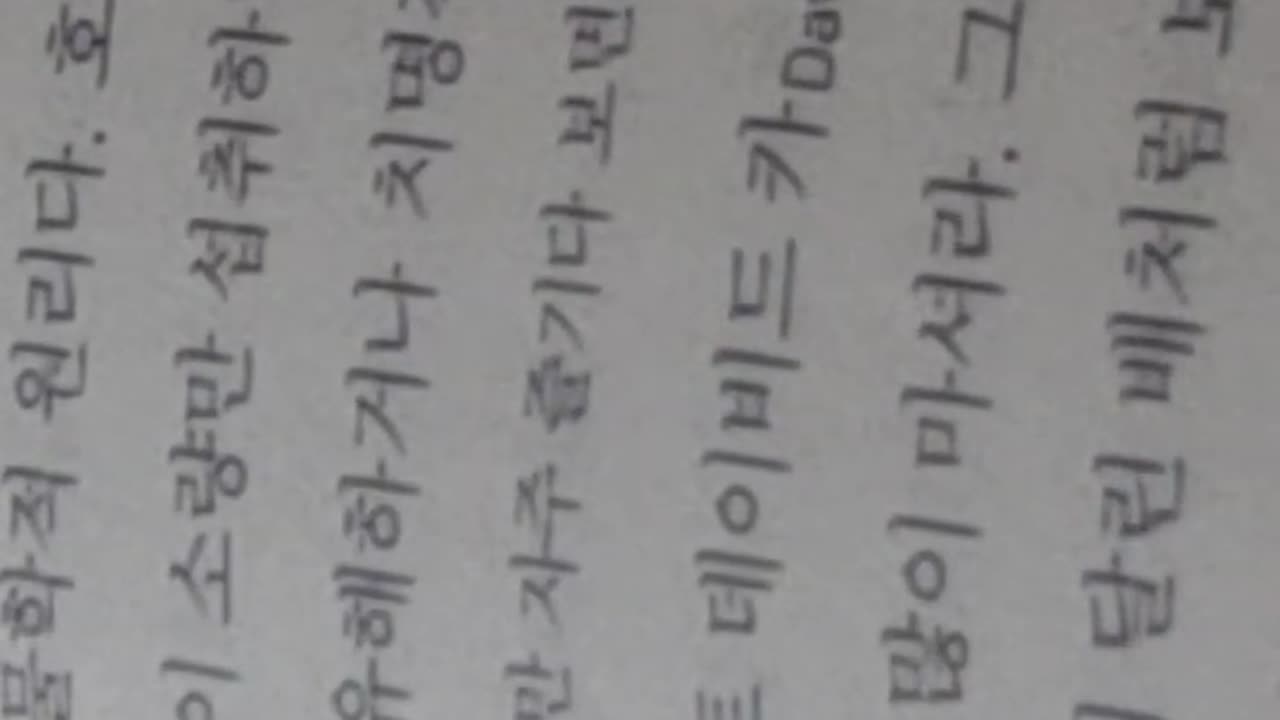 물학적 원리다. 호
이 소량만 섭취하
유해하거나 치명
만 자주 즐기다 보면
트 데이비드 카Da
많이 마셔라. 그
달린 배처럼 보